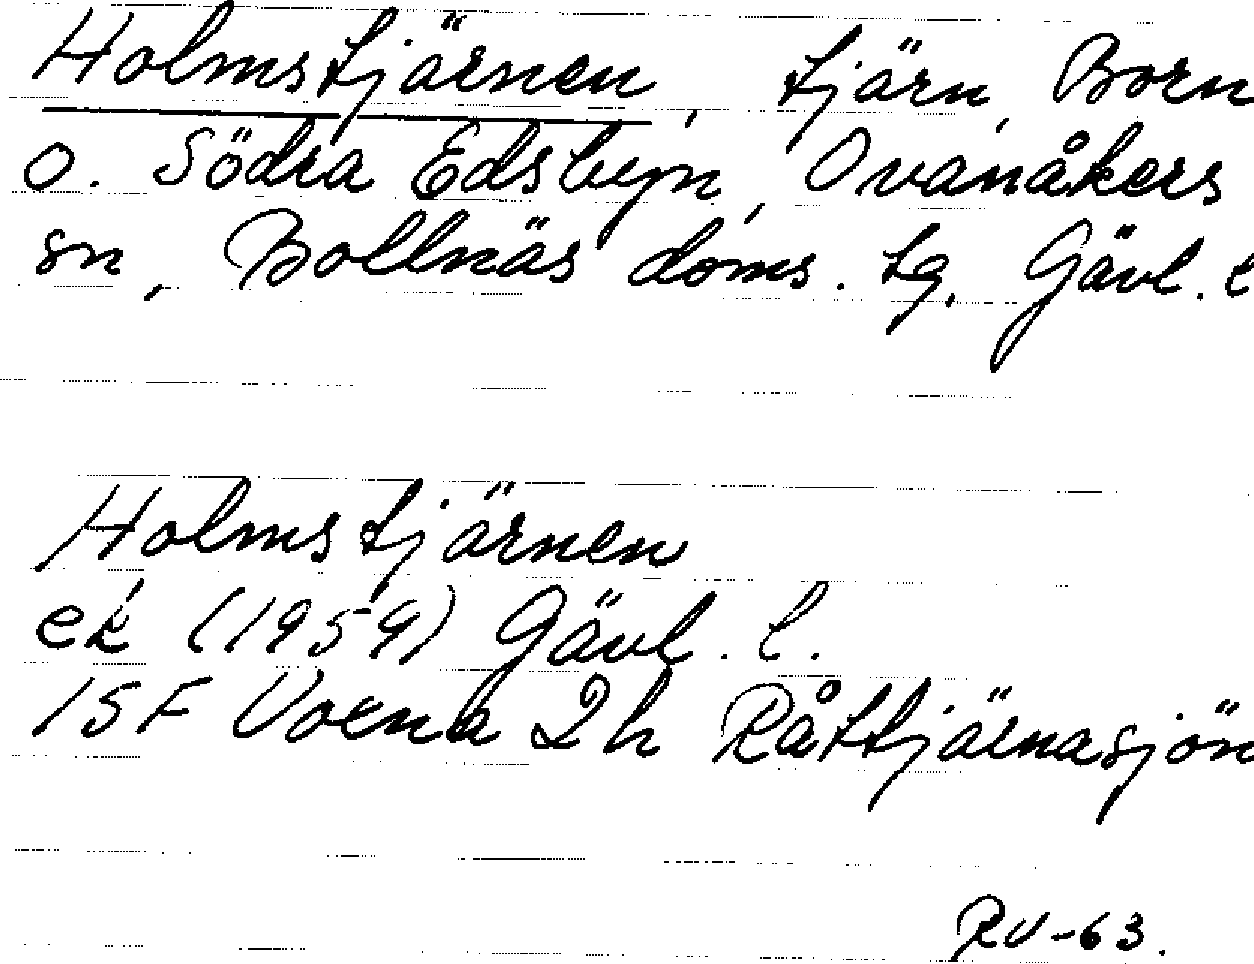 Holmstjärnen, tjärn, Born
o. Södra Edsbyn, Ovanåkers
sn, Bollnäs doms. tg, Gävl. l
Holmstjärnen
ek (1959) Gävl. l.
15F Voxna 2h Råttjärnasjön
RV-63.